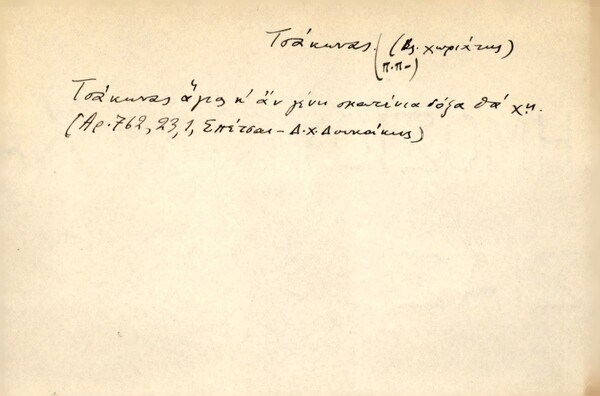 Τσάκωνας (βλ. χωριάτης)
(Π.Π-)
Τσάκωνας ἅγιος κ' ἂν γένῃ σκοτίνια δόξα θά χῃ.
(Αρ. 762, 23, 1, Σπέτσαι - Δ.Χ. Δουκάκης)